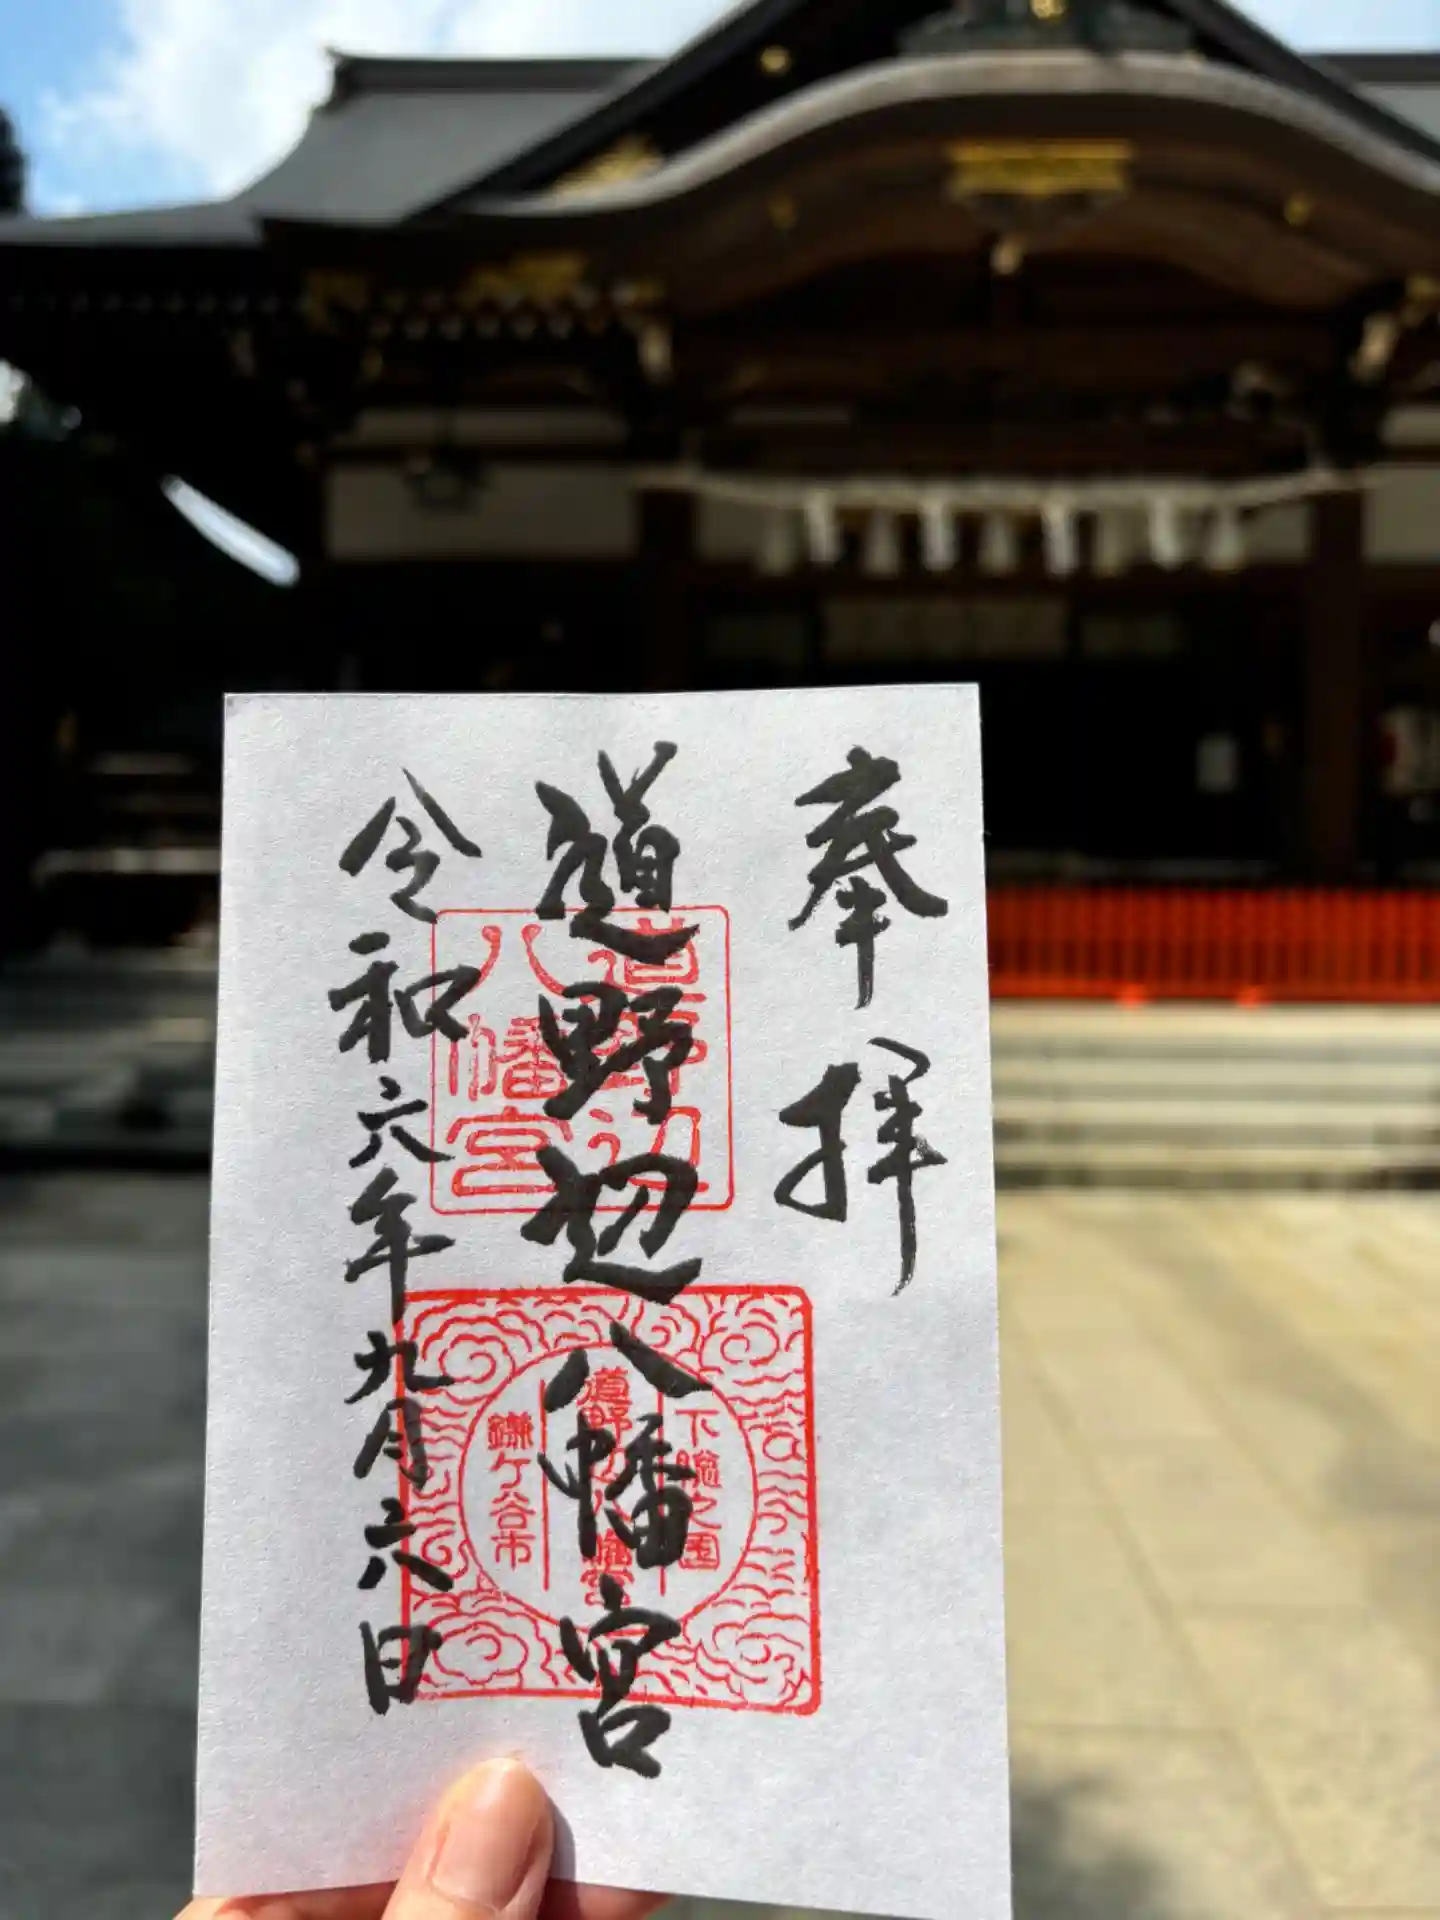 奉拝
道野辺八幡宮
令和六年九月六日
道野辺
八幡宮
下総之国
道野辺八幡宮
鎌ケ谷市